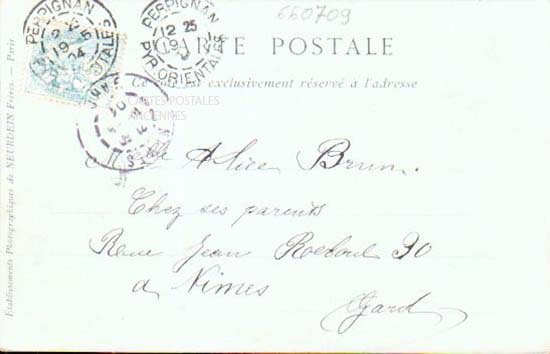 660709
CARTE POSTALE
Ce côté est exclusivement réservé à l'adresse
PERPIGNAN
12 25
19
PYR. ORIENTALES
PERPIGNAN
CARTES POSTALES
ANCIENNES
Mlle Alice Brun.
Chez ses parents
Rue Jean Reboul 30
à Nimes
Gard
Etablissements Photographiques de NEURDEIN Frères. — Paris